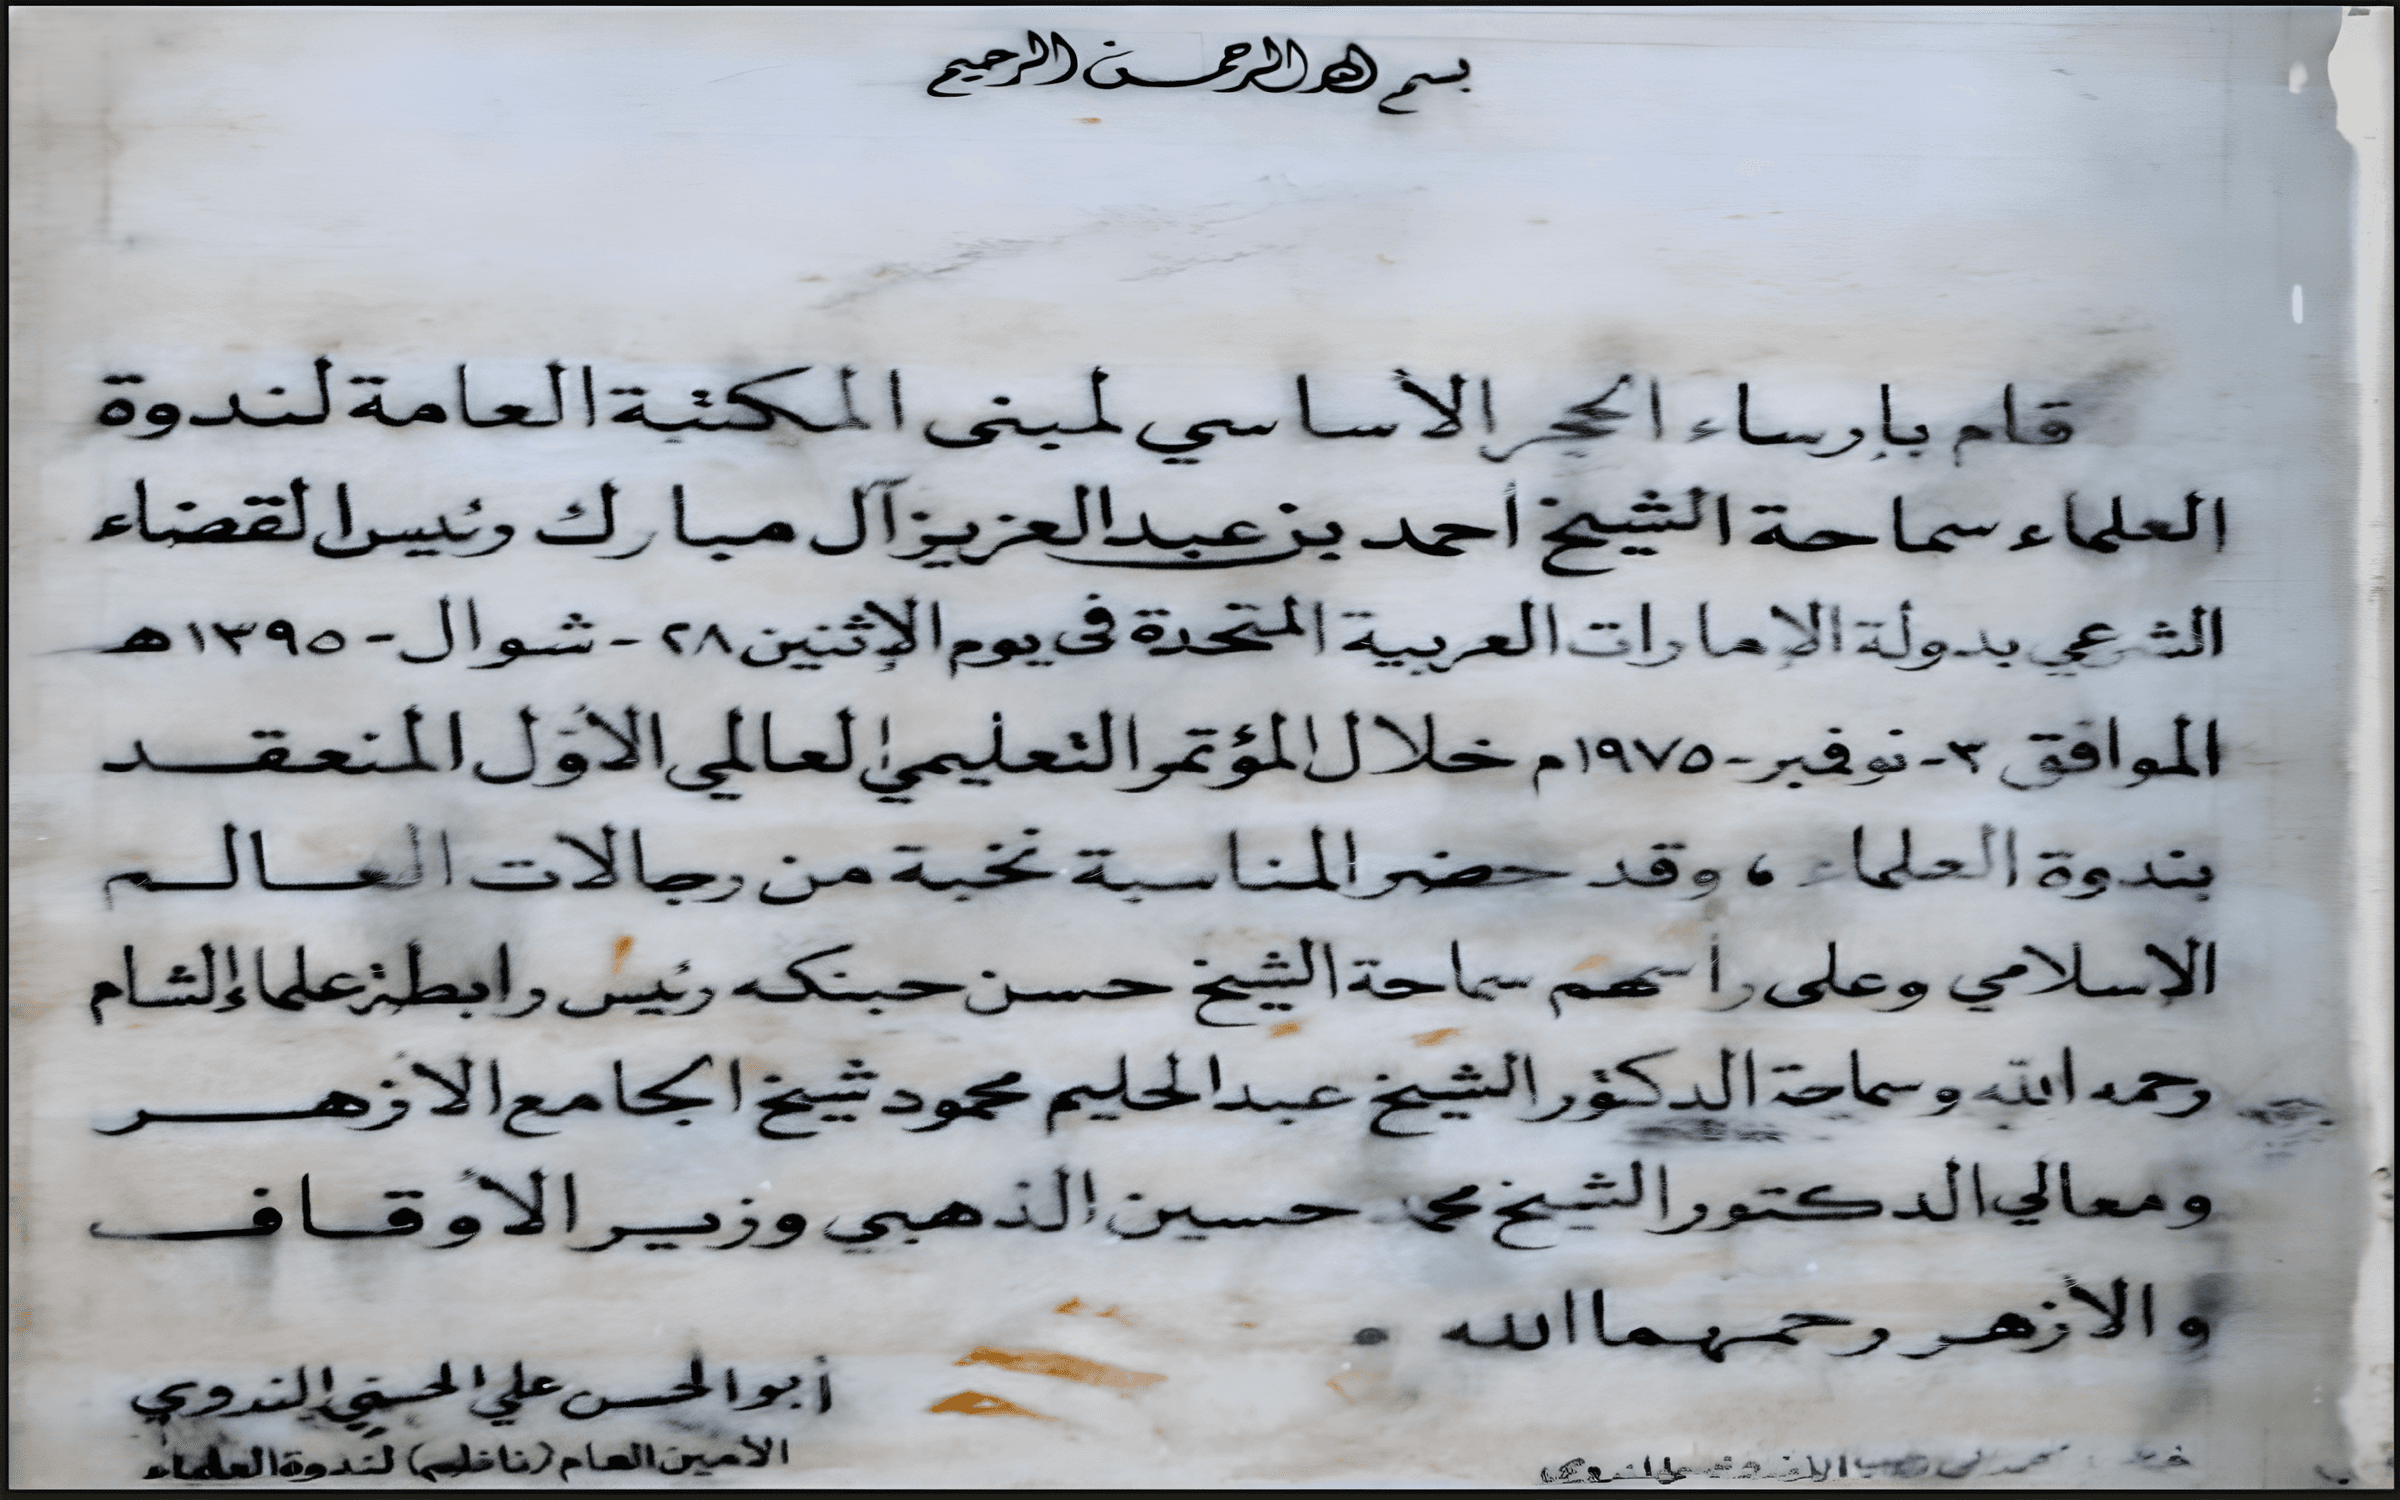 بسم الله الرحمن الرحيم
قام بإرساء الحجر الأساسي لمبنى المكتبة العامة لندوة
العلماء سماحة الشيخ أحمد بن عبد العزيز آل مبارك رئيس القضاء
الشرعي بدولة الإمارات العربية المتحدة فى يوم الإثنين ٢٨ - شوال - ١٣٩٥ هـ
الموافق ٣ - نوفمبر - ١٩٧٥ م خلال المؤتمر التعليمي العالمي الأول المنعقد
بندوة العلماء ، وقد حضر المناسبة نخبة من رجالات العالم
الإسلامي وعلى رأسهم سماحة الشيخ حسن حبنكه رئيس رابطة علماء الشام
رحمه الله وسماحة الدكتور الشيخ عبد الحليم محمود شيخ الجامع الأزهر
ومعالي الدكتور الشيخ محمد حسين الذهبي وزير الأوقاف
والأزهر رحمهما الله .
أبو الحسن علي الحسني الندوي
الأمين العام (ناظم) لندوة العلماء